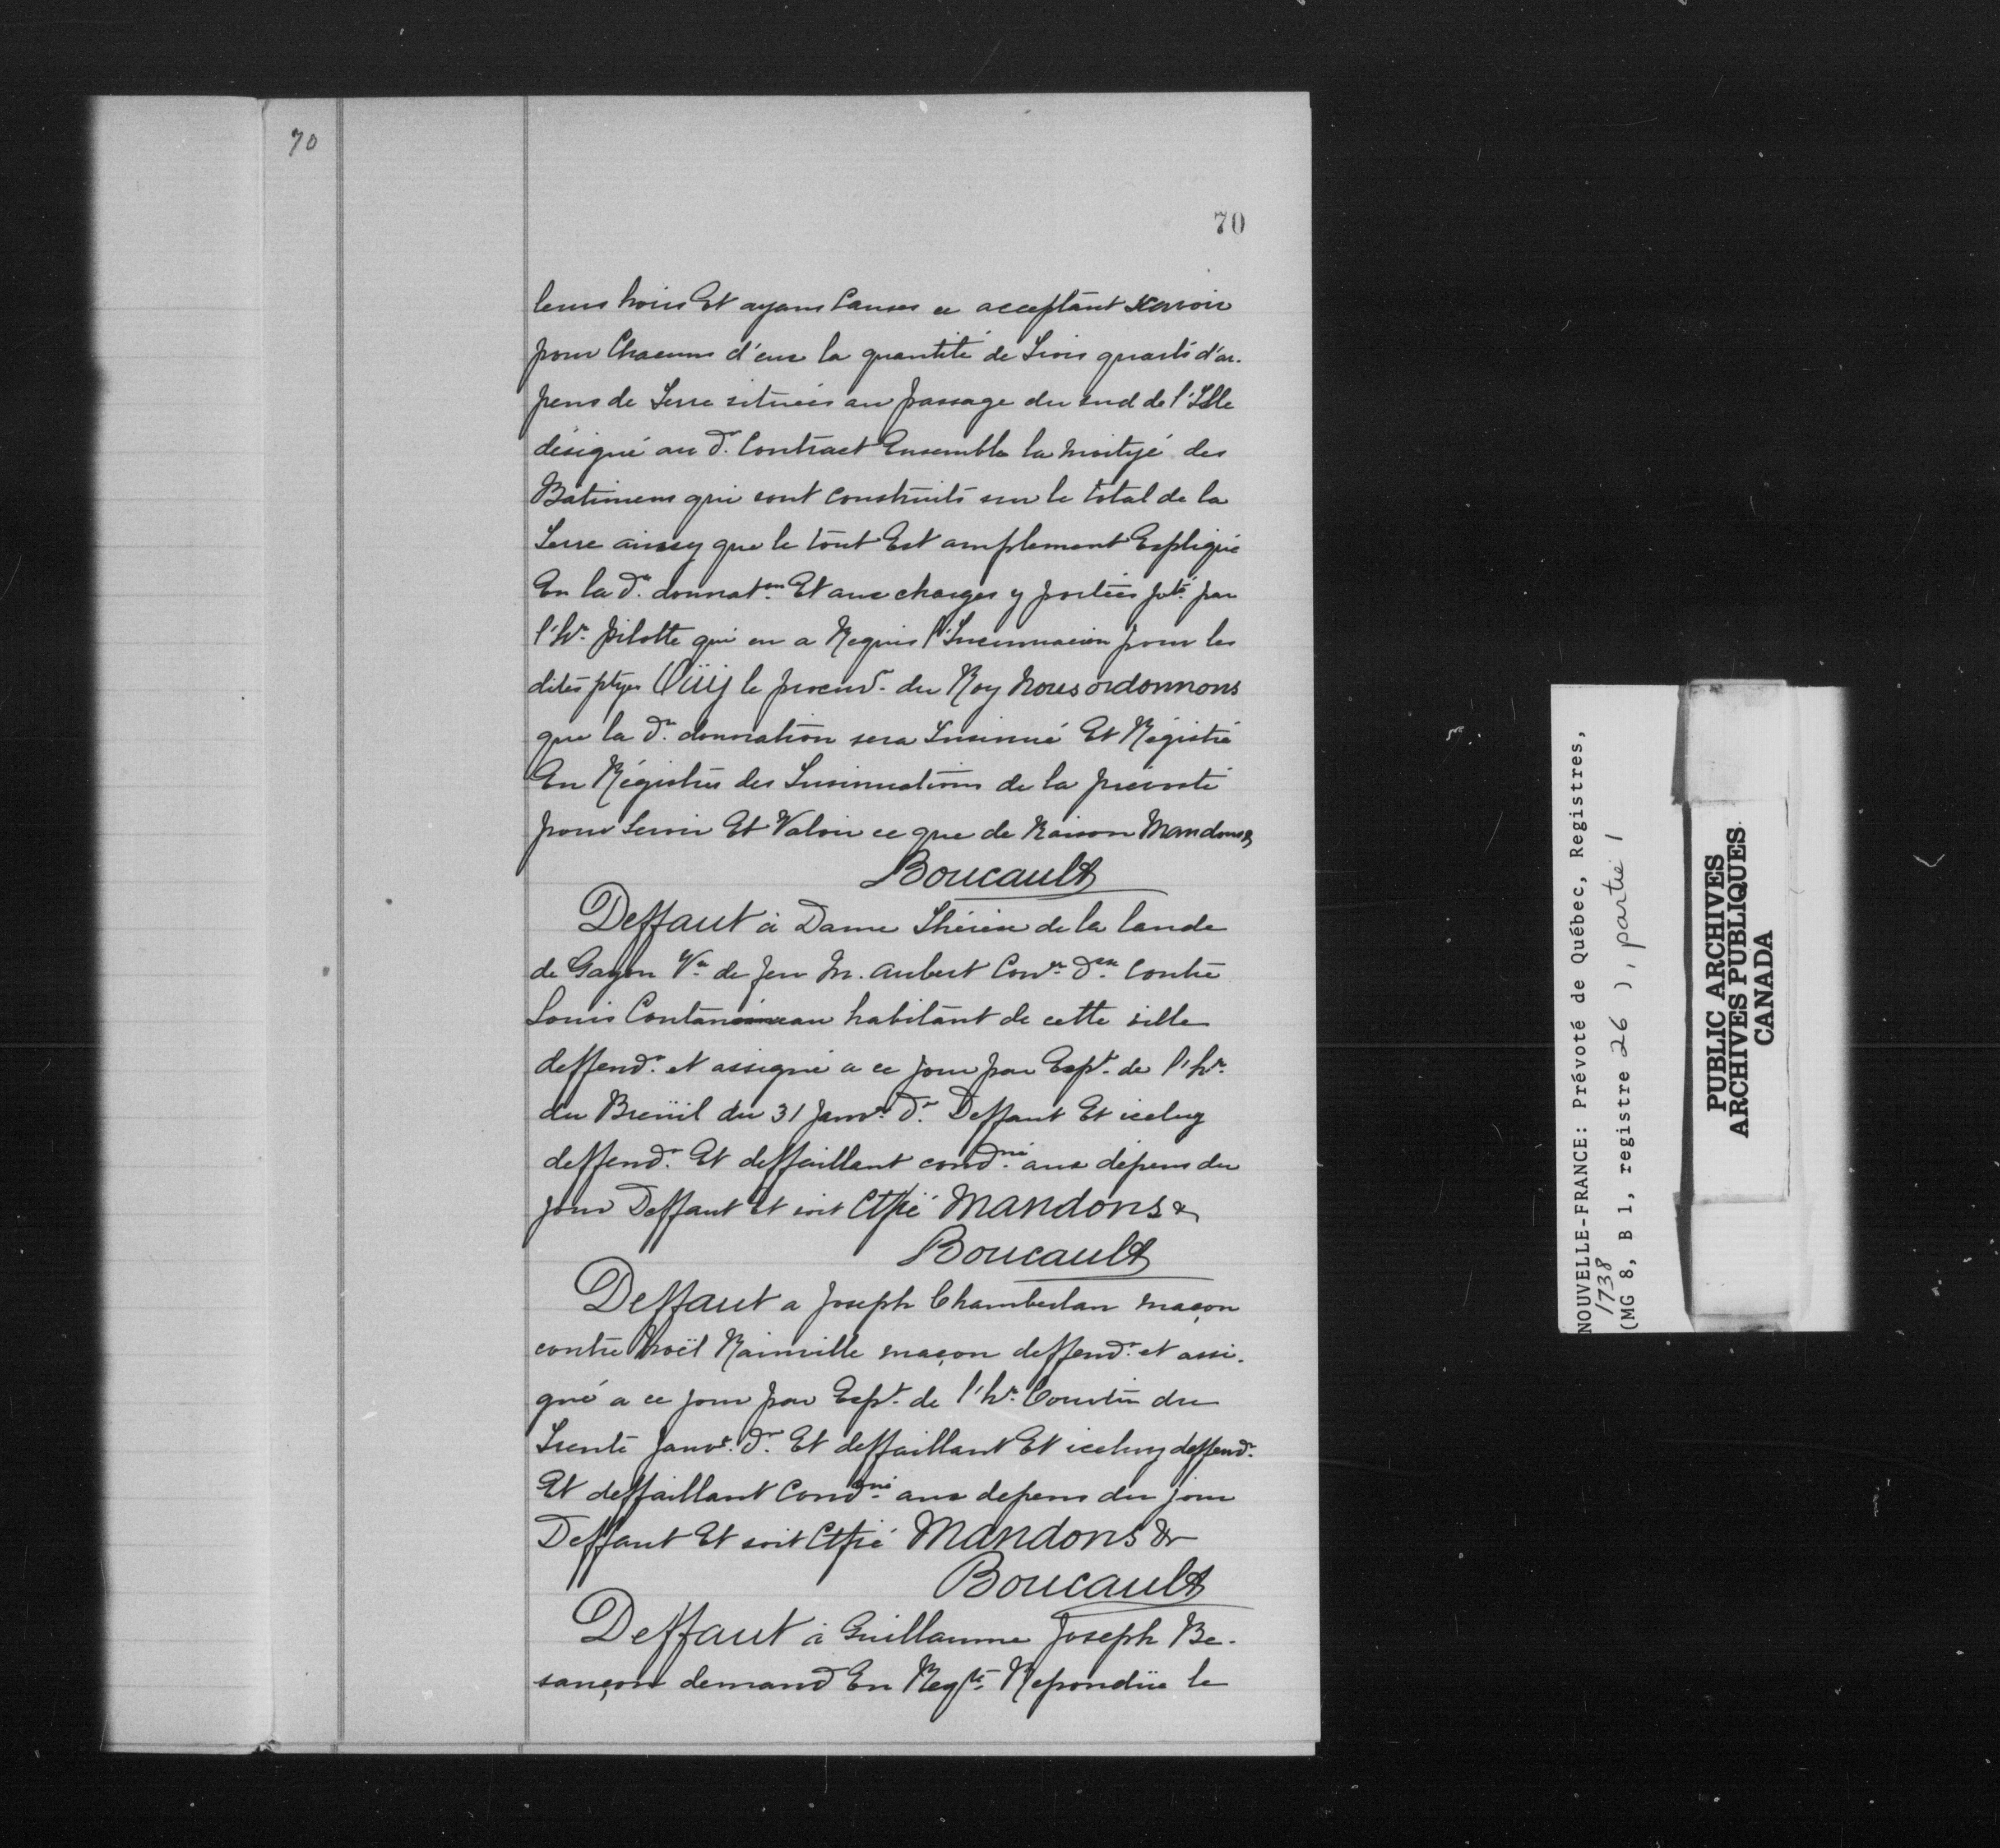 70
70
leurs hoirs Et ayans Causes ce acceptant scavoir
pour Chacuns d'eux la quantité de Trois quarts d'ar-
pens de Terre situées au passage du sud de l'Isle
désigné au d. Contract Ensemble la moityé des
Batimens qui sont construits sur le total de la
Terre ainsy que le tout Est amplement Expliqué
En la de. donnat.on Et aux charges y portées pté. par
l'hr. pilotte qui en a Requis l'Insinuacion pour les
dites ptyes Oüij le procur. du Roy Nous ordonnons
que la de. donnation sera Insinué Et Régistré
En Régistres des Insinuations de la prévosté
pour servir Et Valoir ce que de Raison Mandons &
Boucault
Deffaut à Dame Thérèse de la lande
de Gayon Ve. de feu M. aubert Conr. d.sse contre
Louis Contancineau habitant de cette ville
deffendr. et assigné a ce jour par Expt. de l'hr.
du Breüil du 31 Janvr. dr. Deffaut Et iceluy
deffendr. Et deffaillant condné. aux dépens du
jour Deffaut Et soit Ctfié Mandons &
Boucault
Deffaut a Joseph Chamberlan maçon
contre Noël Rainville maçon deffendr. et assi-
gné a ce jour par Expt. de l'hr. Courtin du
Trente Janvr. dr. Et deffaillant Et iceluy deffendr.
Et deffaillant Condné. aux depens du jour
Deffaut Et soit Ctfié Mandons &
Boucault
Deffaut à Guillaume Joseph Be-
sançon demandr En Reqte. Repondüe le
NOUVELLE-FRANCE: Prévoté de Québec, Registres,
1738
(MG 8, B 1, registre 26 ), partie 1
PUBLIC ARCHIVES
ARCHIVES PUBLIQUES
CANADA